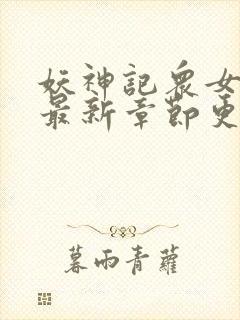 妖神記眾女
最新章節更
暮雨青蘿